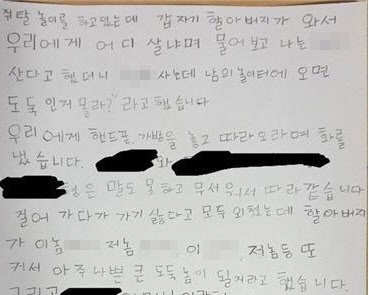 쥐탈 놀이를 하고있는데 갑자기 할아버지가 와서
우리에게 어디 살냐며 물어보고 나는
산다고 했더니 사는데 남의 놀이터에 오면
도둑인거 몰라?" 라고 했습니다
우리에게 핸드폰, 가방을 놓고 따라오라며 화를
냈습니다. 와
형은 말도 못하고 무서워서 따라갔습니다
걸어 가다가 가기싫다고 모두 외쳤는데 할아버지
가 이놈 저놈 , 이 , 저놈등 또
커서 아주 나쁜 큰 도둑놈이 될거라고 했습니다.
그리고